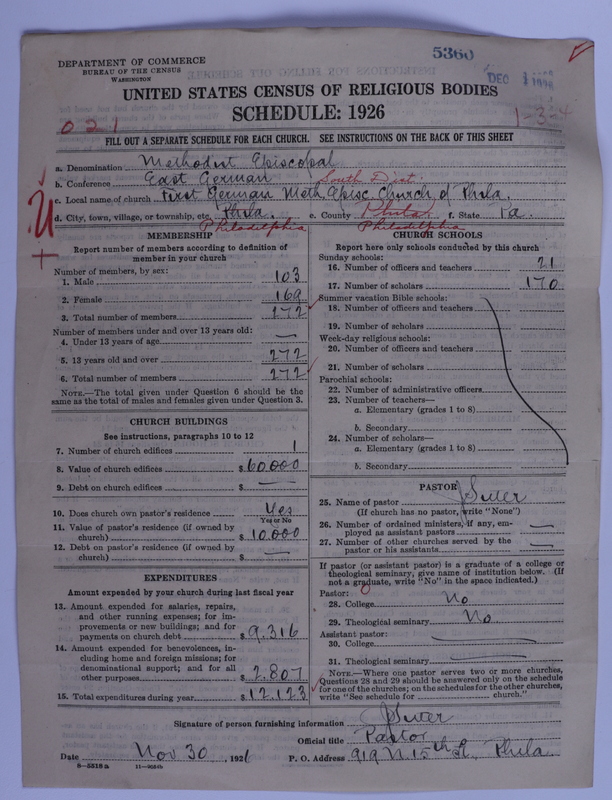 5360
DEPARTMENT OF COMMERCE
BUREAU OF THE CENSUS
WASHINGTON
DEC 1
UNITED STATES CENSUS OF RELIGIOUS BODIES
SCHEDULE: 1926
1-3-4
021
FILL OUT A SEPARATE SCHEDULE FOR EACH CHURCH. SEE INSTRUCTIONS ON THE BACK OF THIS SHEET
a. Denomination Methodist Episcopal
b. Conference East German South Dist.
c. Local name of church First German Meth. Episc. Church of Phila.
d. City, town, village, or township, etc. Phila. e. County Phila. f. State Pa.
Philadelphia Philadelphia
MEMBERSHIP
Report number of members according to definition of
member in your church
Number of members, by sex:
1. Male 103
2. Female 169
3. Total number of members 272
Number of members under and over 13 years old:
4. Under 13 years of age —
5. 13 years old and over 272
6. Total number of members 272
NOTE.—The total given under Question 6 should be
the same as the total of males and females given under Question 3.
CHURCH BUILDINGS
See instructions, paragraphs 10 to 12
7. Number of church edifices 1
8. Value of church edifices $ 60.000
9. Debt on church edifices $ —
10. Does church own pastor's residence Yes
Yes or No
11. Value of pastor's residence (if owned by
church) $ 10.000
12. Debt on pastor's residence (if owned by
church) $ —
EXPENDITURES
Amount expended by your church during last fiscal year
13. Amount expended for salaries, repairs,
and other running expenses; for im-
provements or new buildings; and for
payments on church debt $ 9.316
14. Amount expended for benevolences, in-
cluding home and foreign missions; for
denominational support; and for all
other purposes $ 2.807
15. Total expenditures during year $ 12.123
CHURCH SCHOOLS
Report here only schools conducted by this church
Sunday schools:
16. Number of officers and teachers 21
17. Number of scholars 170
Summer vacation Bible schools:
18. Number of officers and teachers
19. Number of scholars
Week-day religious schools:
20. Number of officers and teachers
21. Number of scholars
Parochial schools:
22. Number of administrative officers
23. Number of teachers—
a. Elementary (grades 1 to 8)
b. Secondary
24. Number of scholars—
a. Elementary (grades 1 to 8)
b. Secondary
PASTOR
25. Name of pastor J Suter
(If church has no pastor, write "None")
26. Number of ordained ministers, if any, em-
ployed as assistant pastors —
27. Number of other churches served by the
pastor or his assistants —
If pastor (or assistant pastor) is a graduate of a college or
theological seminary, give name of institution below. (If
not a graduate, write "No" in the space indicated.)
Pastor:
28. College No
29. Theological seminary No
Assistant pastor:
30. College —
31. Theological seminary —
NOTE.—Where one pastor serves two or more churches,
Questions 28 and 29 should be answered only on the schedule
for one of the churches; on the schedules for the other churches,
write "See schedule for church."
Signature of person furnishing information J Suter
Official title Pastor
Date Nov 30, 1926 P. O. Address 919 N. 15th St., Phila
8—5518a 11—9054b